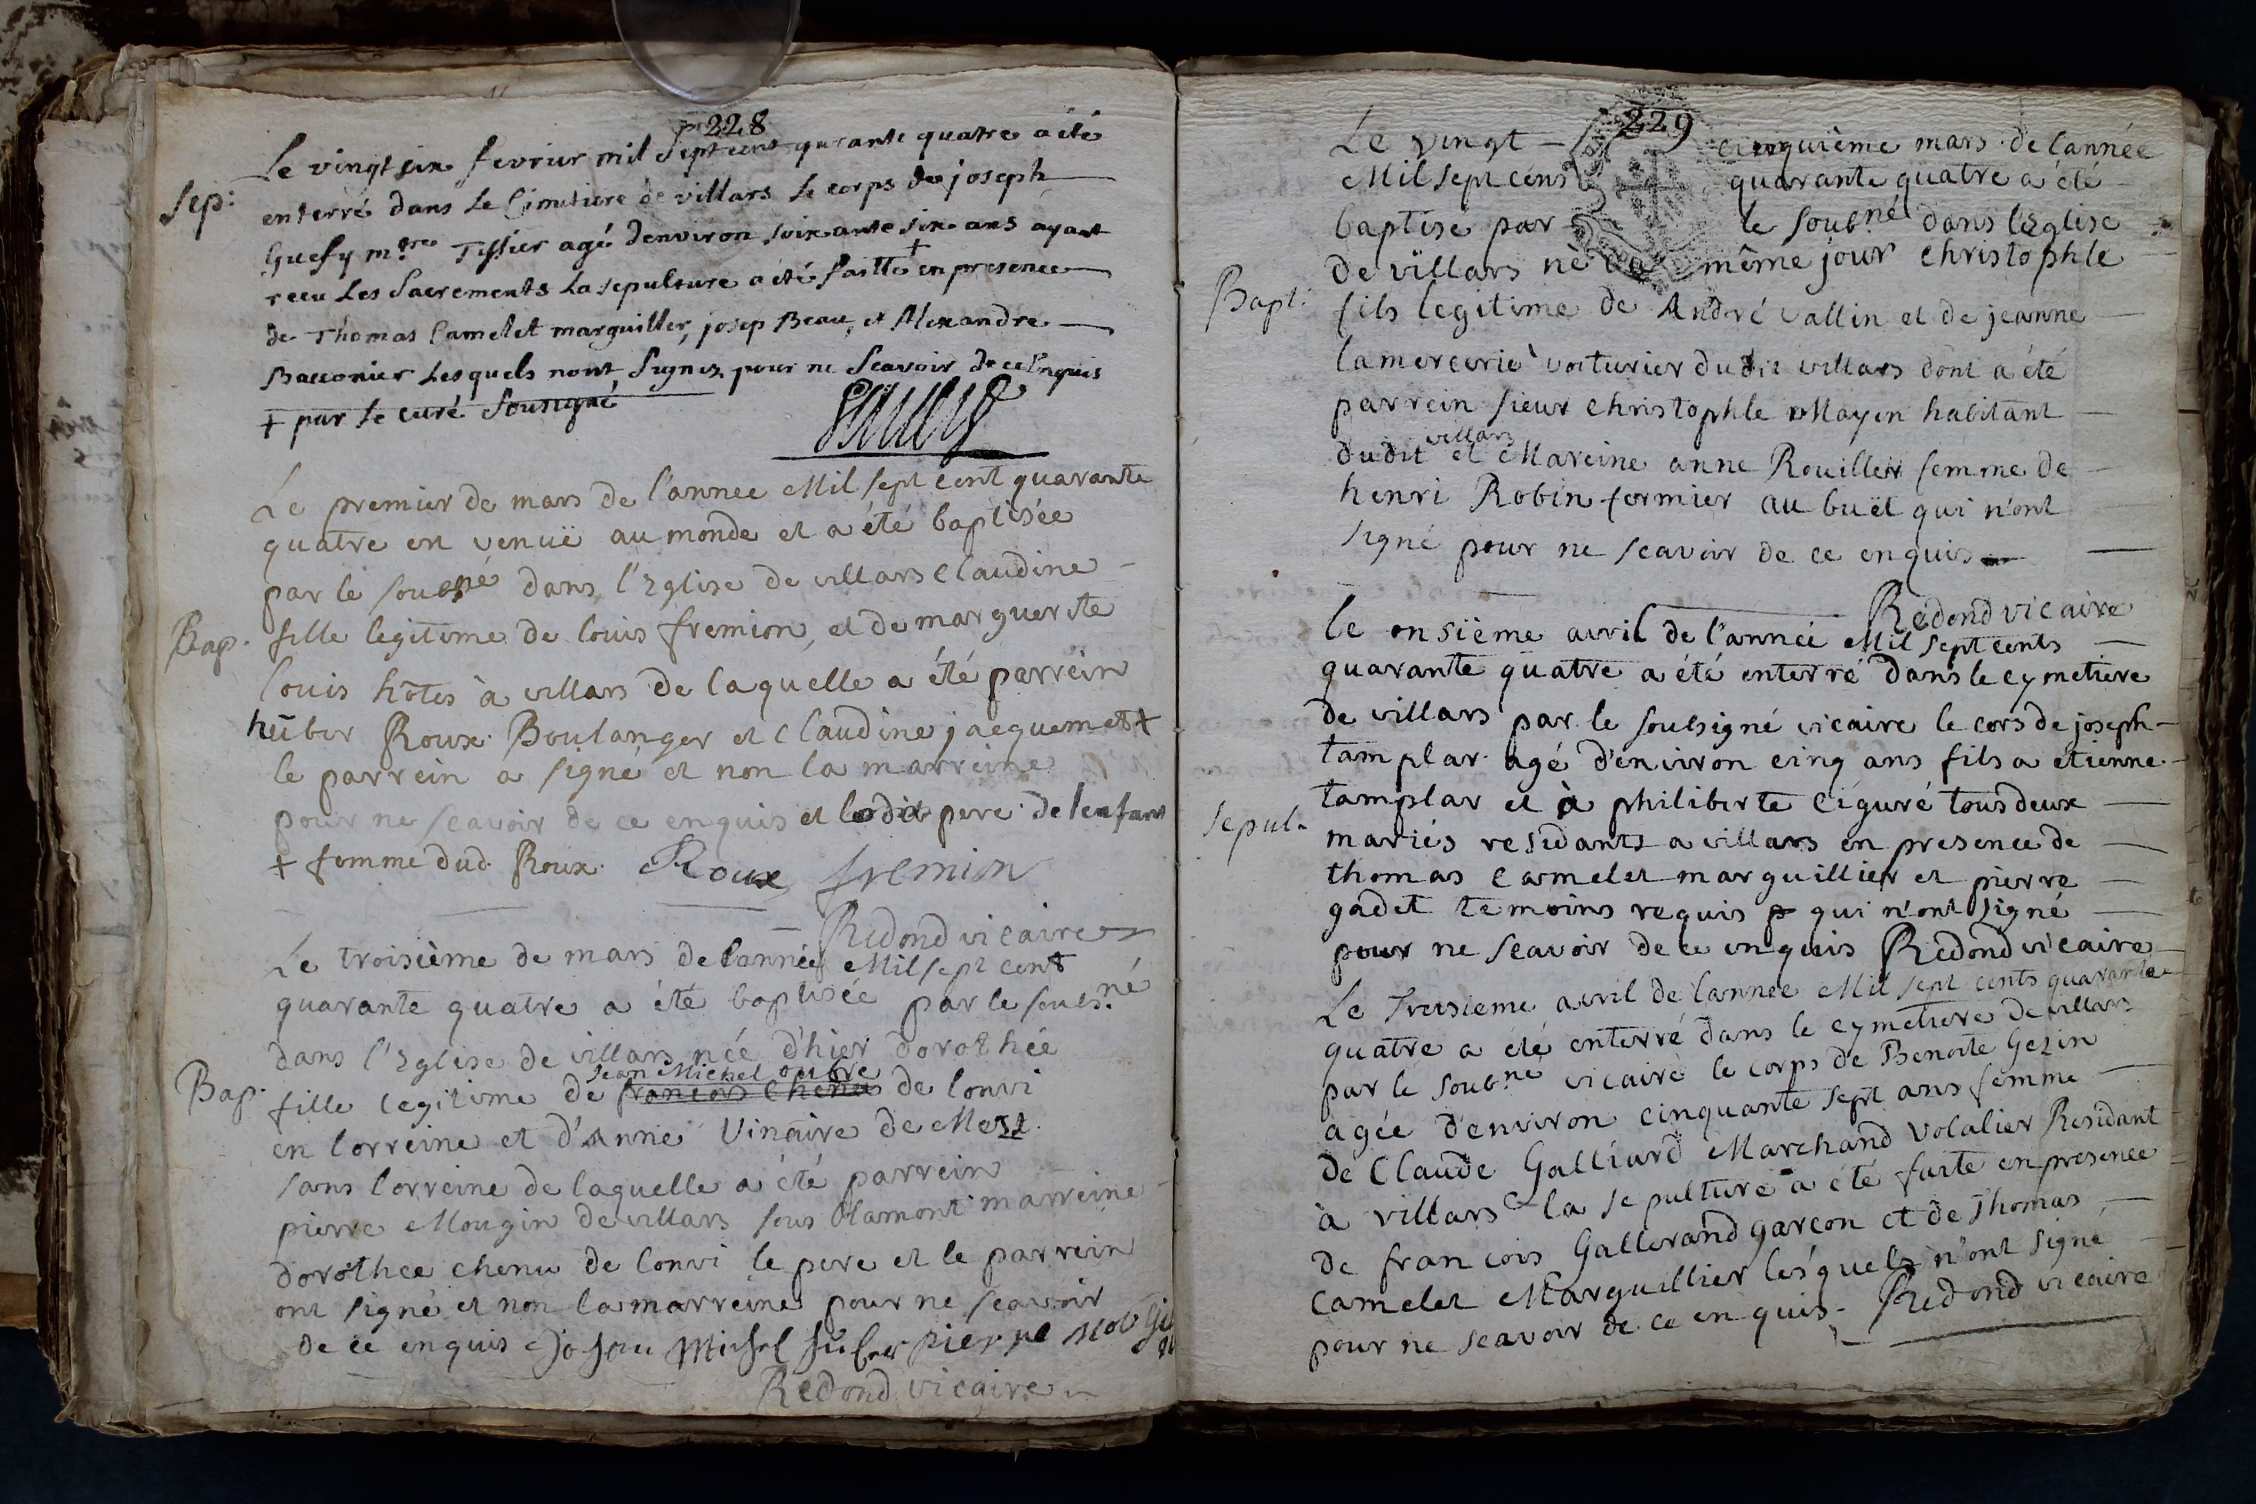 228
Le vingt six fevrier mil sept cent quarante quatre a été
Sep: enterré dans le Cimetiere de villars le corps de joseph
Guesy m.tre Tissier agé denviron soixante six ans ayant
receu les Sacrements la sepulture a été faitte + en presence
de Thomas Camelet marguiller, josep Beau, et Alexandre
Bacconier lesquels nont signez pour ne scavoir de ce enquis
+ par le curé sousigné
Le premier de mars de l'annee Mil sept cent quarante
quatre en venuë au monde et a été baptisée
par le soubsné dans l'Eglise de villars claudine
Bap. fille legitime de louis fremion, et de marguerite
louis hôtes à villars de laquelle a été parrein
hüber Roux Boulanger et claudine jacquemet +
le parrein a signé et non la marreine
pour ne scavoir de ce enquis et ledit pere de lenfant
+ femme dud. Roux. Roux fremion
Redond vicaire
Le troisième de mars de l'année Mil sept cent
quarante quatre a été baptisée par le soubs.né
dans l'Eglise de villars née d'hier dorothée
jean Michel
Bap. fille legitime de francois Chenu de lonvi
en lorreine et d'Anne Vinaire de Mest
sans lorreine de laquelle a été parrein
pierre Mougin de villars sous blamont marreine
dorothee chenu de lonvi le pere et le parrein
ont signé et non la marreine pour ne scavoir
de ce enquis Michel pierre
Redond vicaire
229
Le vingt cinquième mars de l'année
Mil sept cens quarante quatre a été
baptisé par le soubné dans l'Eglise
de villars né même jour christophle
Bapt. fils legitime de André vallin et de jeanne
lamercerie voiturier dudit villars dont a été
parrein sieur christophle Mayen habitant
villars
dudit et Mareine anne Rouiller femme de
henri Robin fermier au buët qui n'ont
signé pour ne scavoir de ce enquis
Redond vicaire
le onsiëme avril de l'anneé Mil sept cents
quarante quatre a été enterré dans le cymetiere
de villars par le soubsigné vicaire le cors de joseph
tamplar agé d'environ cinq ans fils a etienne
tamplar et à philiberte ciguré tous deux
Sepul. mariés residants a villars en presence de
thomas camelet marguillier et pierre
gadet temoins requis p qui n'ont signé
pour ne scavoir de ce enquis Redond vicaire
Le Treisieme avril de l'annee Mil sept cents quarante
quatre a été enterré dans le cymetiere de villars
par le soubné vicaire le corps de Benoite Gezin
agée d'environ cinquante sept ans femme
de Claude Galliard Marchand Volalier Residant
à villars la sepulture a été faite en presence
de francois Gallerand garcon et de Thomas
Camelet Marguillier lesquels n'ont signé
pour ne scavoir de ce enquis. Redond vicaire